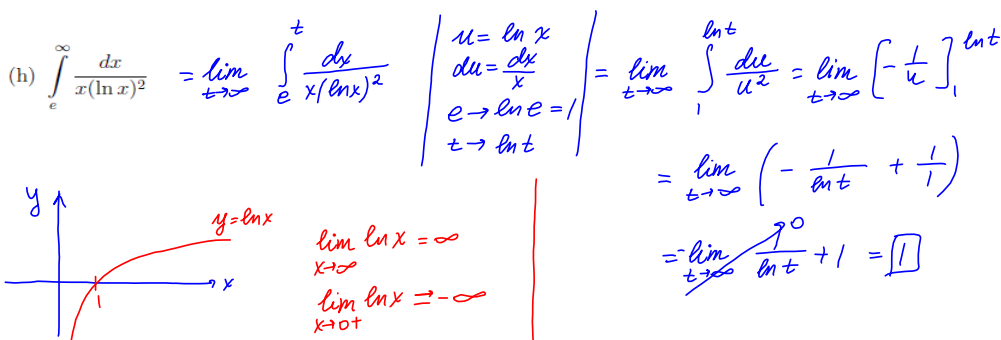 (h) ∫_e^∞ dx / x(ln x)² = lim_{t→∞} ∫_e^t dx / x(ln x)² | u = ln x, du = dx/x, e → ln e = 1, t → ln t | = lim_{t→∞} ∫_1^{ln t} du/u² = lim_{t→∞} [-1/u]_1^{ln t}
= lim_{t→∞} (- 1/ln t + 1/1)
= -lim_{t→∞} 1/ln t → 0 + 1 = 1
y
y = ln x
x
1
lim_{x→∞} ln x = ∞
lim_{x→0+} ln x = -∞